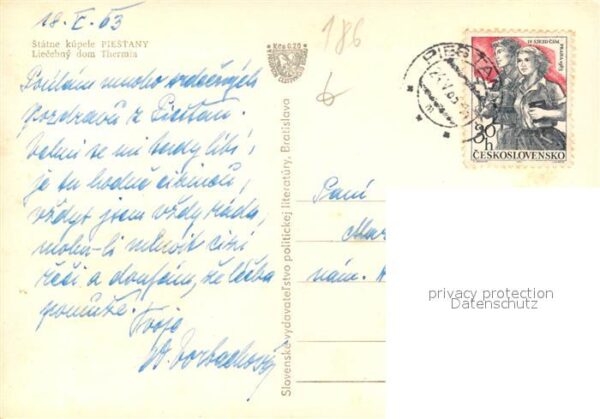 18. V. 63
Štátne kúpele PIEŠŤANY
Liečebný dom Thermia
Kčs 0,20
186
6
Posílám mnoho srdečných
pozdravů z Piešťan.
Velmi se mi tady líbí,
je tu hodně cizinců,
vždyť jsem vždy ráda,
mohu-li mluvit cizí
řečí a doufám, že léčba
pomůže.
Tvoje
Slovenské vydavateľstvo politickej literatúry, Bratislava
PIEŠŤANY
IV. SJEZD ČSM
PRAHA 1963
30
h
ČESKOSLOVENSKO
Paní
Mar
nám.
privacy protection
Datenschutz